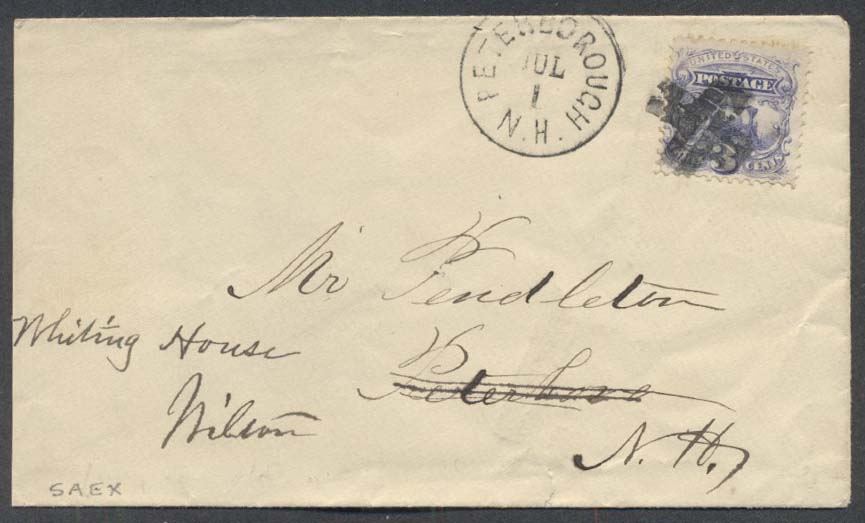 PETERBOROUGH. N.H.
JUL
1
UNITED STATES
POSTAGE
3
CENTS
Mr Pendleton
Whiting House
Peterboro
Wilton
N. H.
SAEX